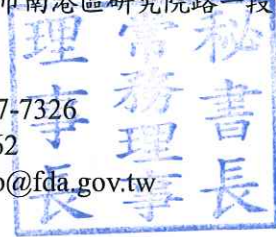 市南港區研究院路一段
7-7326
62
o@fda.gov.tw
秘書長
常務理事
理事長